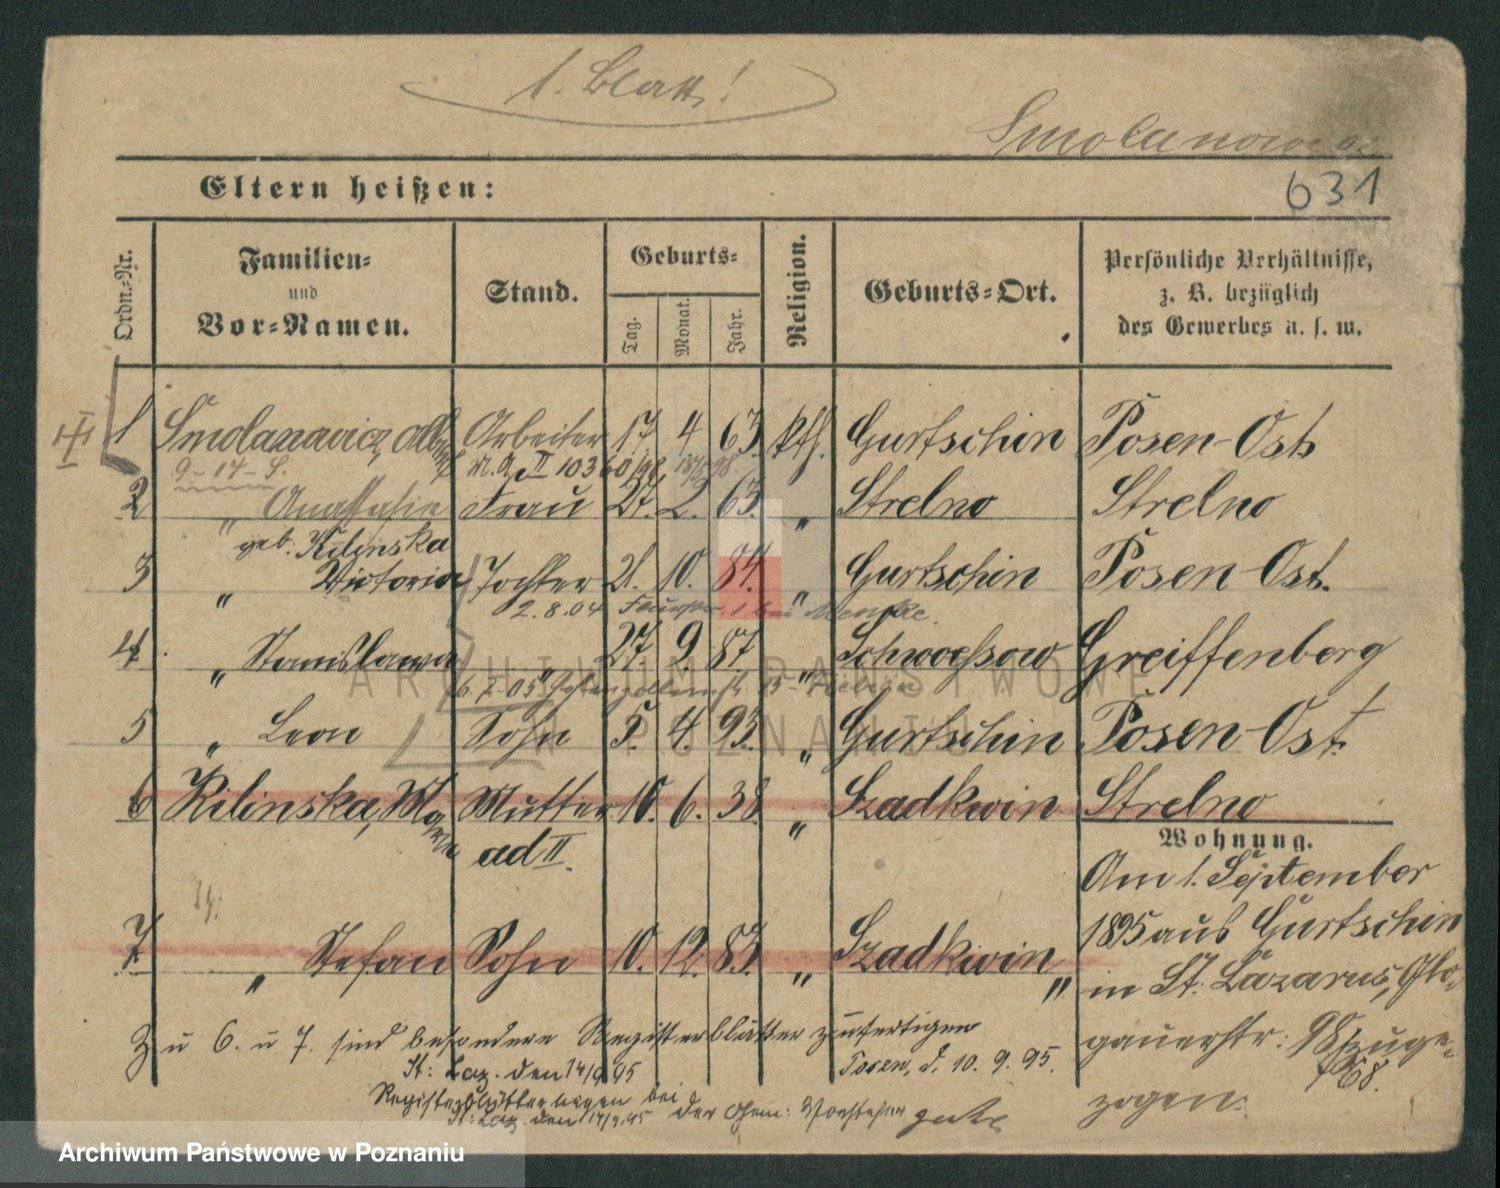 1. Blatt!
Smolanowicz
631
Eltern heißen:
Ordn.-Nr.
Familien-
und
Vor-Namen.
Stand.
Geburts-
Tag.
Monat.
Jahr.
Religion.
Geburts-Ort.
Persönliche Verhältnisse,
z. B. bezüglich
des Gewerbes u. s. w.
1 Smolanavicz, Arbeiter 17 4 63. kth. Gurtschin Posen-Ost
9-14-
2 " Anastasie Frau 27. 2. 63. " Strelno Strelno
geb. Kilinska
3 " Victoria Tochter 21. 10. 84. " Gurtschin Posen-Ost.
2.8.04
4 " Stanislawa " 27. 9. 87. " Greiffenberg
5 " Leon Sohn 5. 4. 93. " Gurtschin Posen-Ost.
6 Kilinska, Mutter 10. 6. 38. " Szadkwin Strelno
ad II.
Wohnung.
Am 1. September
7 " Stefan Sohn 10. 12. 83. " Szadkwin " 1895 aus Gurtschin
in St. Lazarus, Glo-
gauerstr. zuge-
zogen.
Zu 6. u 7. sind besondere Registerblätter zufertigen
Posen, d. 10. 9. 95.
St: Laz. den 14/9 95
Registerblätter liegen bei
St: Laz. den 14/9.95 der Gem: Vorsteher
ARCHIWUM PAŃSTWOWE
W POZNANIU
Archiwum Państwowe w Poznaniu